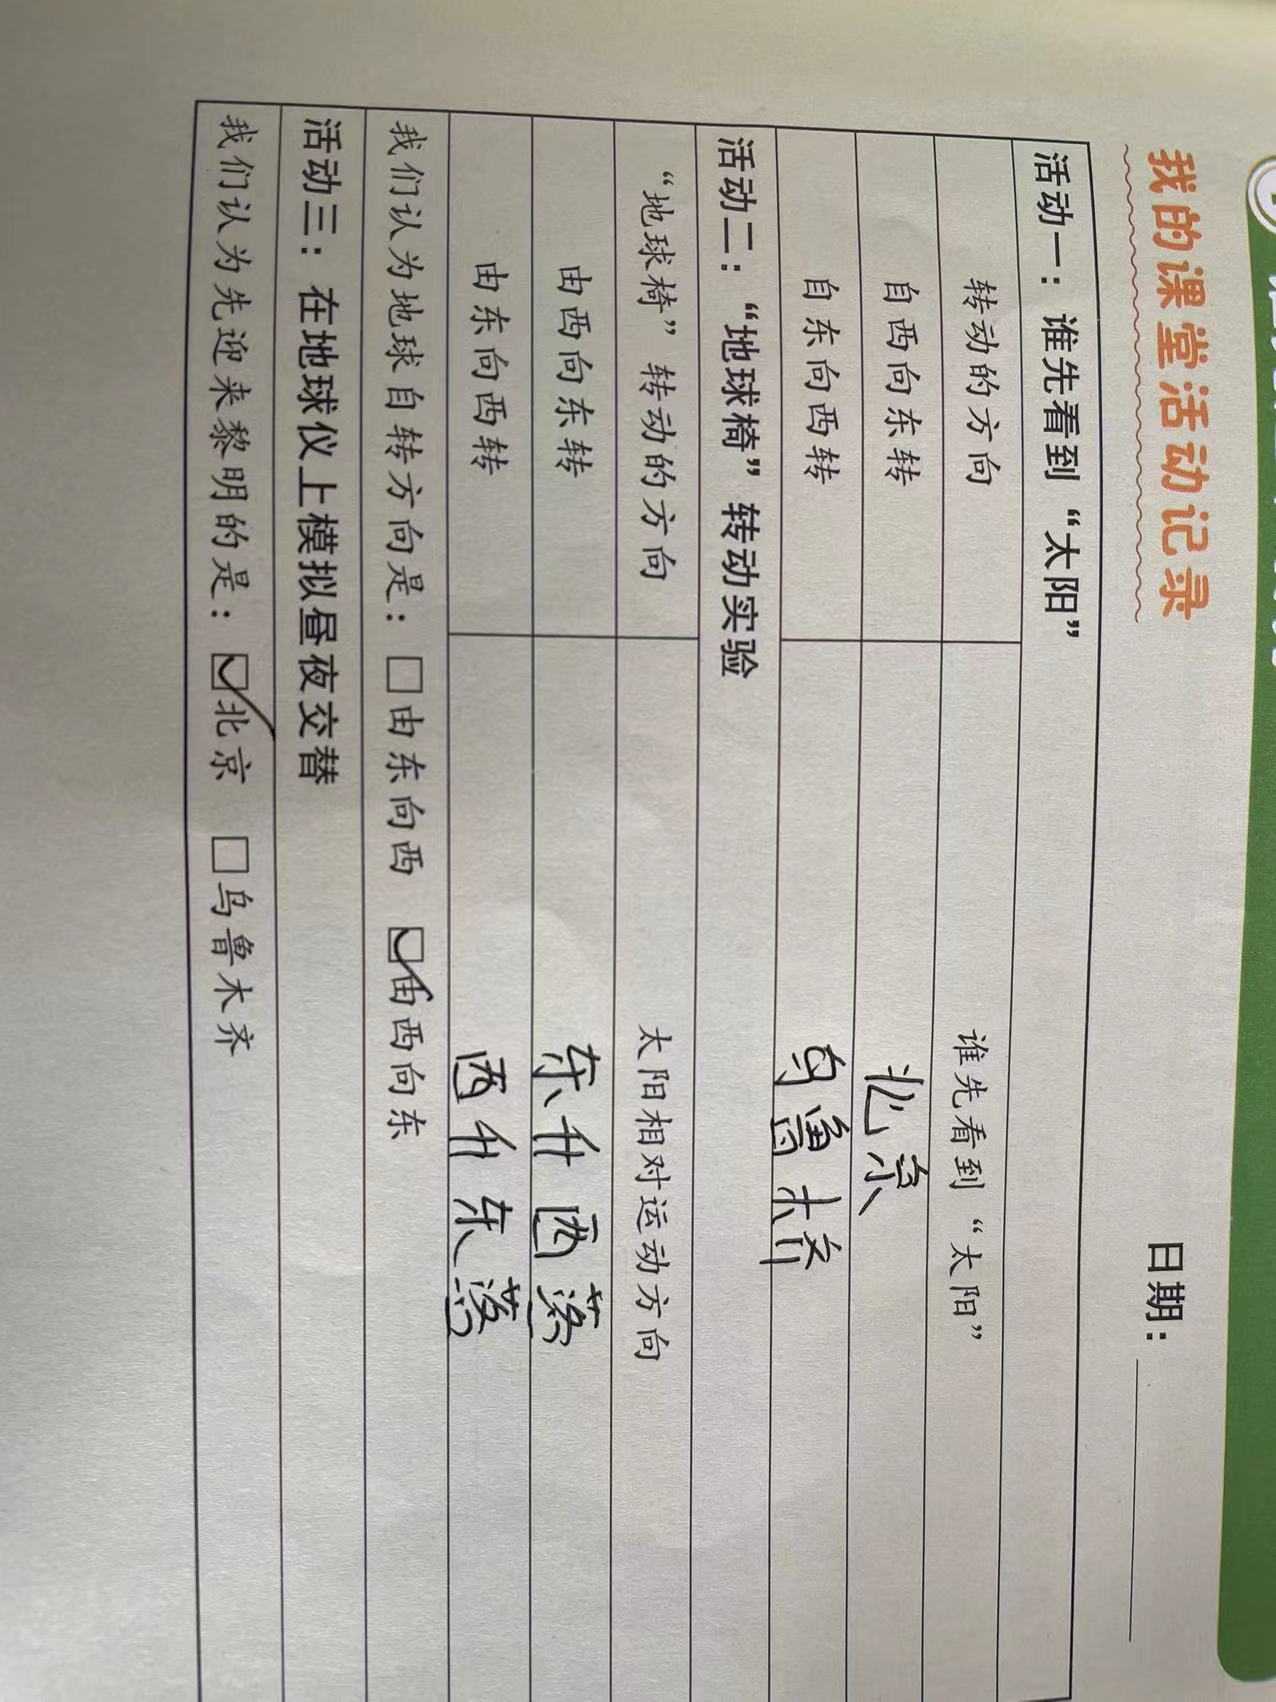 我的课堂活动记录 日期：
活动一：谁先看到“太阳”
转动的方向 谁先看到“太阳”
自西向东转 北京
自东向西转 乌鲁木齐
活动二：“地球椅”转动实验
“地球椅”转动的方向 太阳相对运动方向
由西向东转 东升西落
由东向西转 西升东落
我们认为地球自转方向是：□由东向西 ☑由西向东
活动三：在地球仪上模拟昼夜交替
我们认为先迎来黎明的是：☑北京 □乌鲁木齐